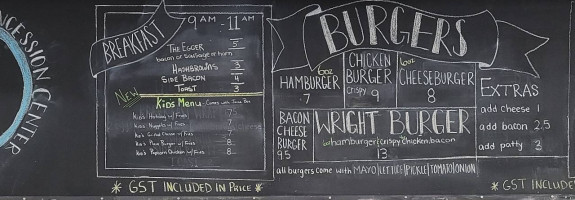 CONCESSION CENTER
BREAKFAST
9 AM - 11 AM
THE EGGER 5
bacon or sausage or ham
HASHBROWNS 3
SIDE BACON 4
TOAST 3
NEW
Kids Menu
Kid's Hotdog w/ Fries 7
Kid's Nuggets w/ Fries 7
Kid's Grilled Cheese w/ Fries 7
Kid's Pizza Burger w/ Fries 8
Kid's Popcorn Chicken w/ Fries 8
* GST INCLUDED IN PRICE *
BURGERS
6oz HAMBURGER 7
CHICKEN BURGER crispy 9
6oz CHEESEBURGER 8
BACON CHEESE BURGER 9.5
WRIGHT BURGER
6oz hamburger/crispy chicken/bacon
13
all burgers come with MAYO|LETTUCE|PICKLE|TOMATO|ONION
EXTRAS
add cheese 1
add bacon 2.5
add patty 3
* GST INCLUDE